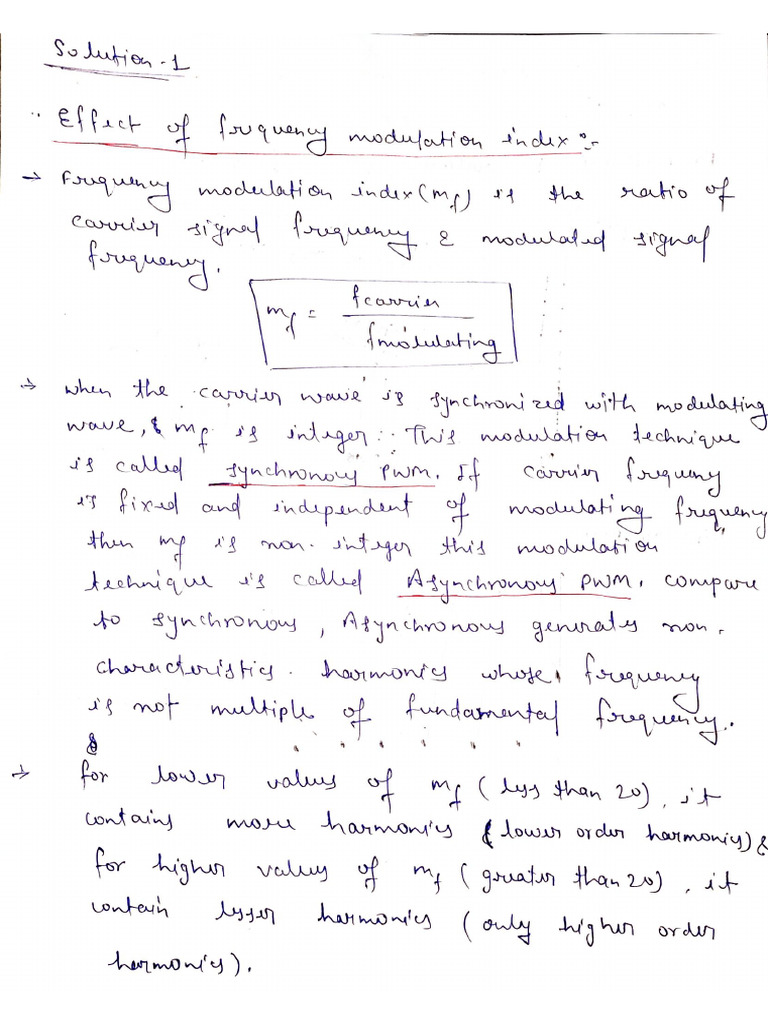 Solution-1
Effect of frequency modulation index :-
→ Frequency modulation index (mf) is the ratio of
carrier signal frequency & modulated signal
frequency.
mf = fcarrier / fmodulating
→ when the carrier wave is synchronized with modulating
wave, & mf is integer. This modulation technique
is called synchronous PWM. If carrier frequency
is fixed and independent of modulating frequency,
then mf is non-integer this modulation
technique is called Asynchronous PWM. compare
to synchronous, Asynchronous generates non-
characteristics harmonics whose frequency
is not multiple of fundamental frequency.
→ for lower values of mf (less than 20), it
contains more harmonics (lower order harmonics) &
for higher values of mf (greater than 20), it
contain lesser harmonics (only higher order
harmonics).